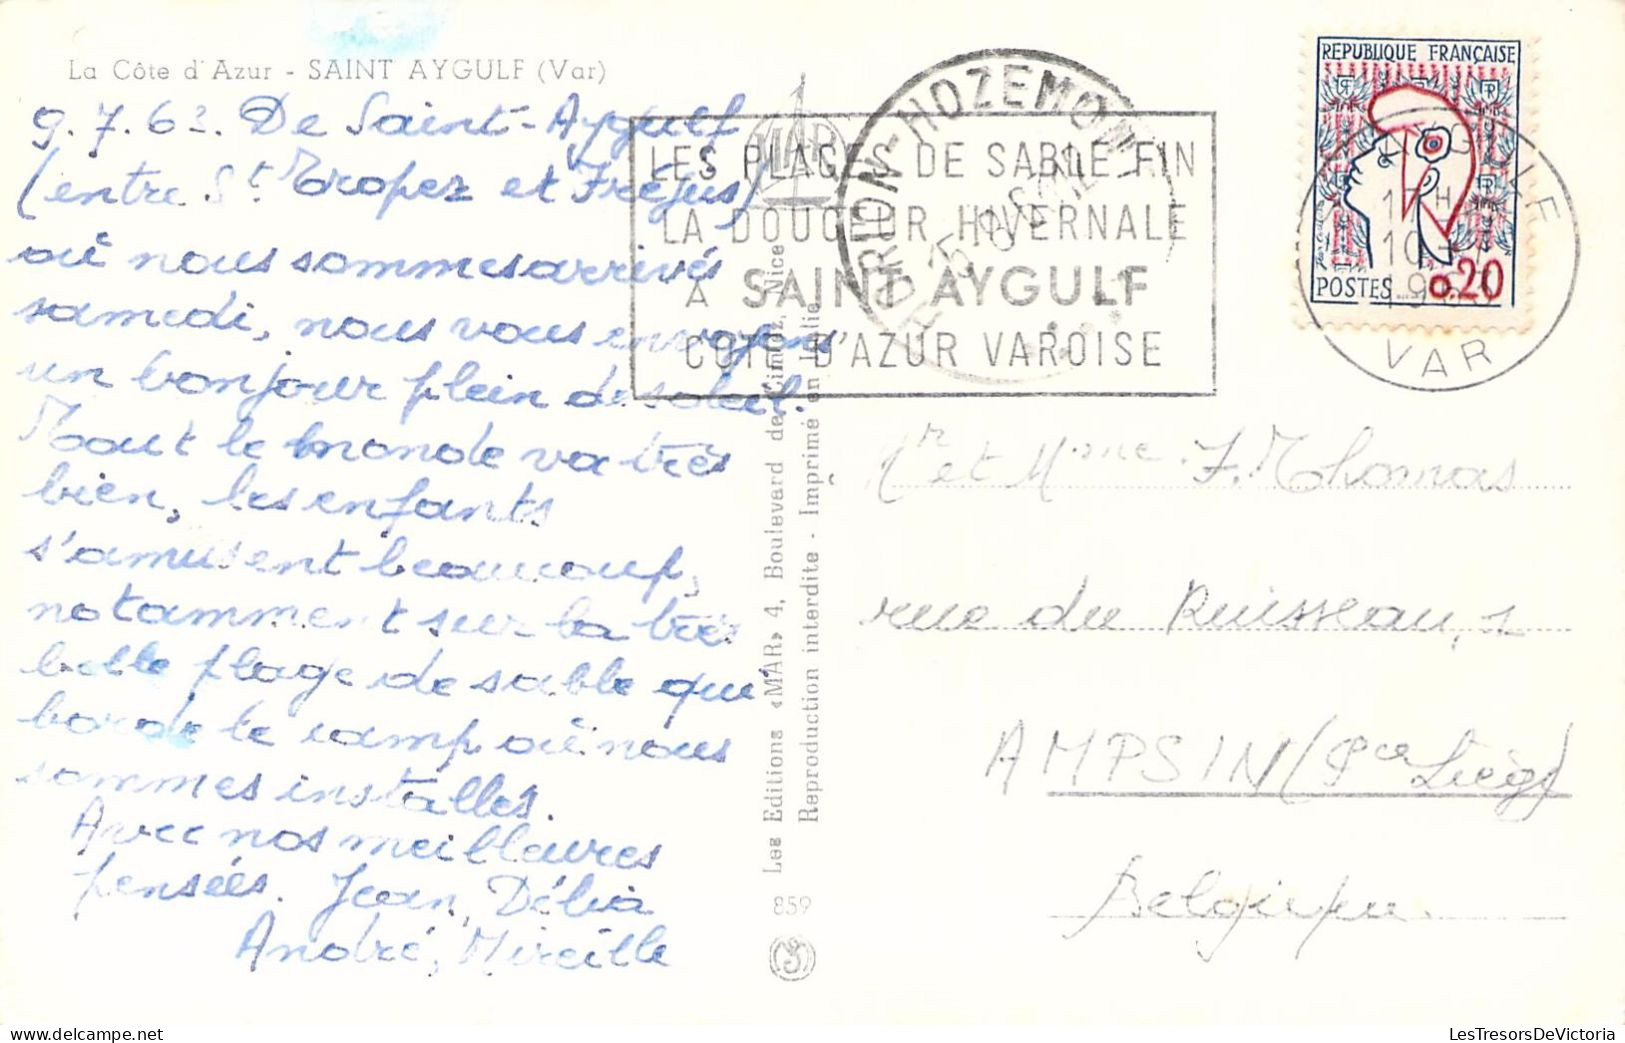 La Côte d'Azur - SAINT AYGULF (Var)
9.7.63. De Saint-Aygulf
(entre St Tropez et Fréjus)
où nous sommes arrivés
samedi, nous vous envoyons
un bonjour plein de soleil.
Tout le monde va très
bien, les enfants
s'amusent beaucoup,
notamment sur la très
belle plage de sable qui
borde le camp où nous
sommes installés.
Avec nos meilleures
pensées. Jean, Délia
André, Mireille
MAR
Les Editions «MAR» 4, Boulevard de Cimiez, Nice
Reproduction interdite - Imprimé en Italie
859
LES PLAGES DE SABLE FIN
LA DOUCEUR HIVERNALE
A SAINT AYGULF
COTE D'AZUR VAROISE
HOZEMONT
REPUBLIQUE FRANÇAISE
POSTES 0.20
AYGULF
17H
10-7
VAR
Mr et Mme F. Thomas
rue du Ruisseau, 1
AMPSIN (Pce Liège)
Belgique.
LesTresorsDeVictoria